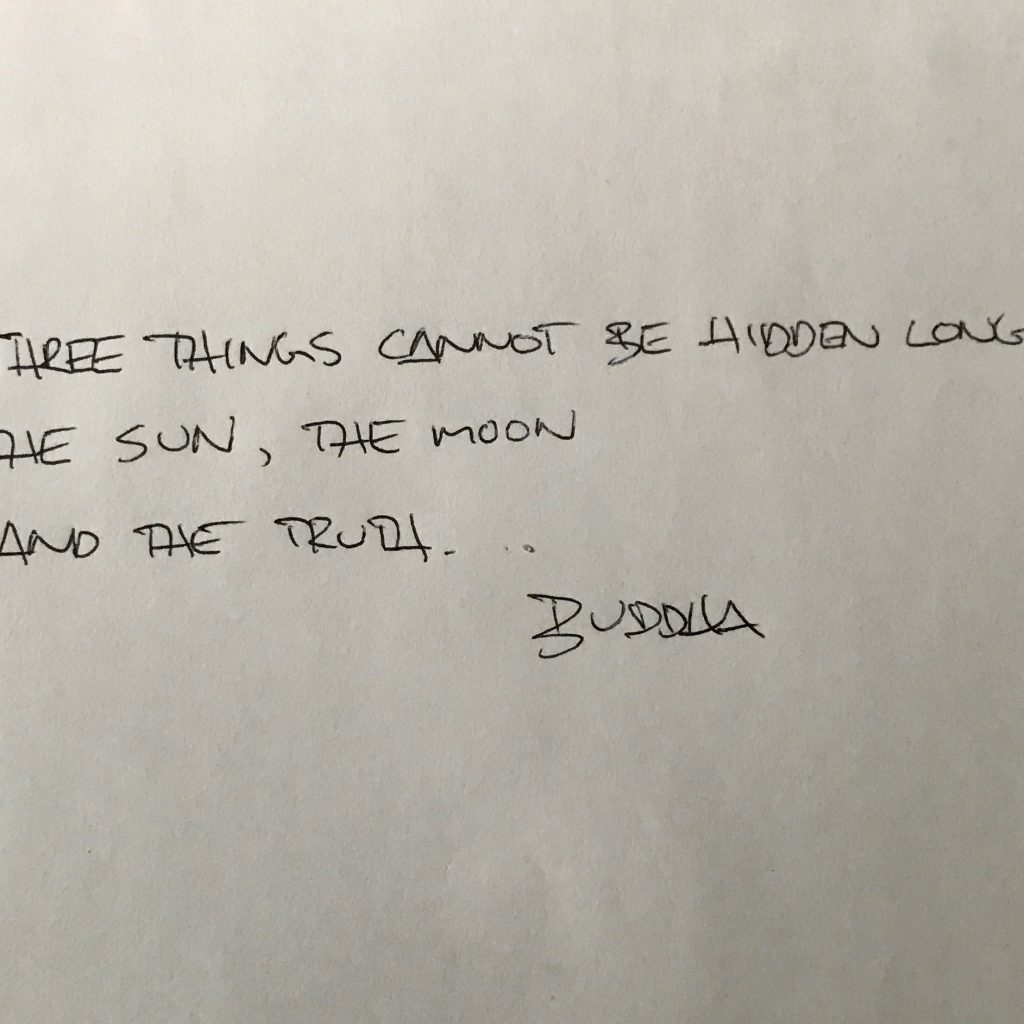 THREE THINGS CANNOT BE HIDDEN LONG
THE SUN, THE MOON
AND THE TRUTH. ..
BUDDHA